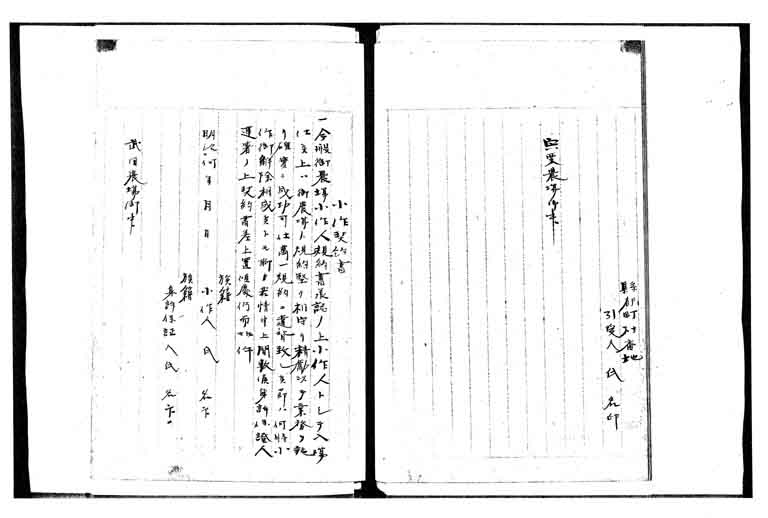 県郡町村番地
引受人 氏 名印
興受農場御中
小作契約書
一今般御農場小作人規約書承認ノ上小作人トシテ入場
仕候上ハ御農場ノ規約堅ク相守リ精励以テ業務ヲ執
リ確実ニ成功可仕萬一規約ニ違背致シ候節ハ何時小
作御解除相成候トモ聊カ苦情申上間敷候身許保證人
連署ノ上契約書差上置候處仍而如件
明治何年 月 日
族籍
小作人 氏 名印
族籍
身許保証人 氏 名印
武田農場御中